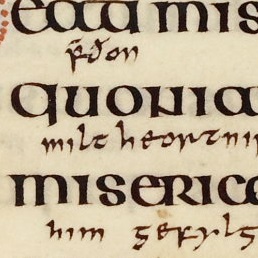 eati mis
f'ðon
quonia
milt heortni
miserico
him gefylg